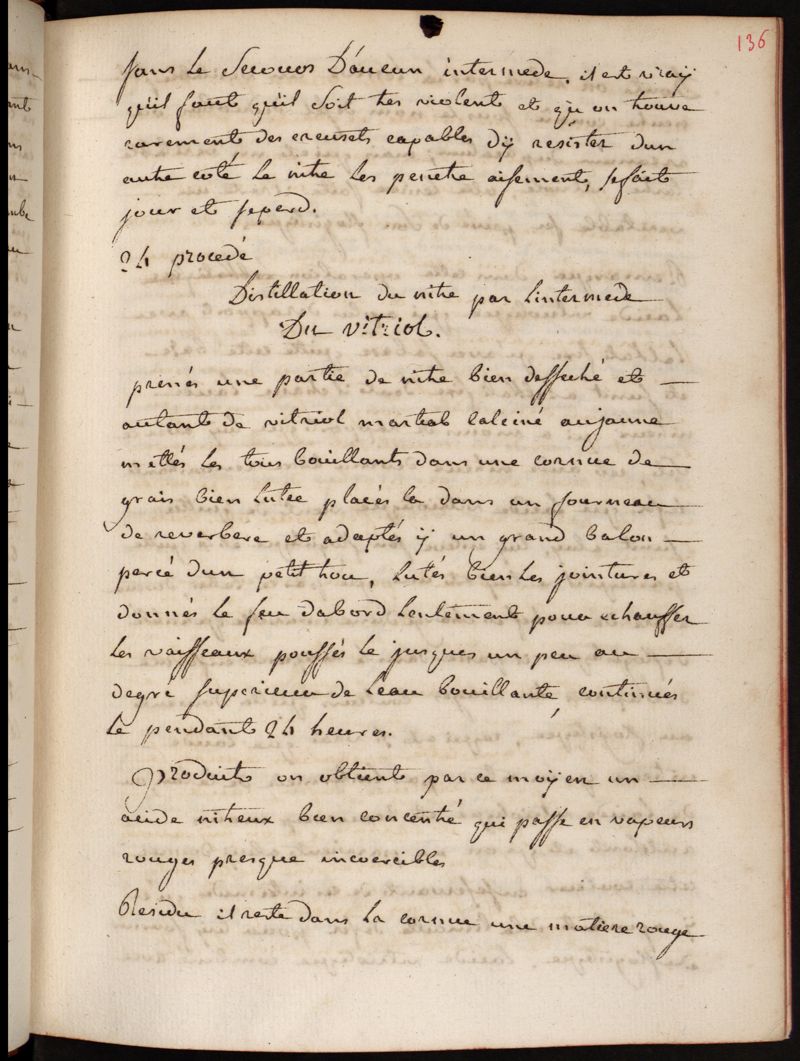 136
sans le secours D'aucun intermede. il est vray
qu'il faut qu'il soit tres violent et qu'on trouve
rarement des creusets capables d'ÿ resister d'un
autre coté le nitre les penetre aisement, se fait
jour et se perd.
24 procedé
Distillation du nitre par l'intermede
Du vitriol.
prenés une partie de nitre bien desseché et
autant de vitriol martial calciné au jaune
mettés les tous bouillants dans une cornue de
grais bien lutée placés la dans un fourneau
de reverbere et adaptés ÿ un grand balon
percé d'un petit trou, lutés bien les jointures et
donnés le feu dabord lentement pour echauffer
les vaisseaux poussés le jusques un peu au
degré superieur de l'eau bouillante, continués
le pendant 24 heures.
Produit on obtient par ce moÿen un
acide nitreux bien concentré qui passe en vapeurs
rouges presque incoercibles
Residu il reste dans la cornue une matiere rouge